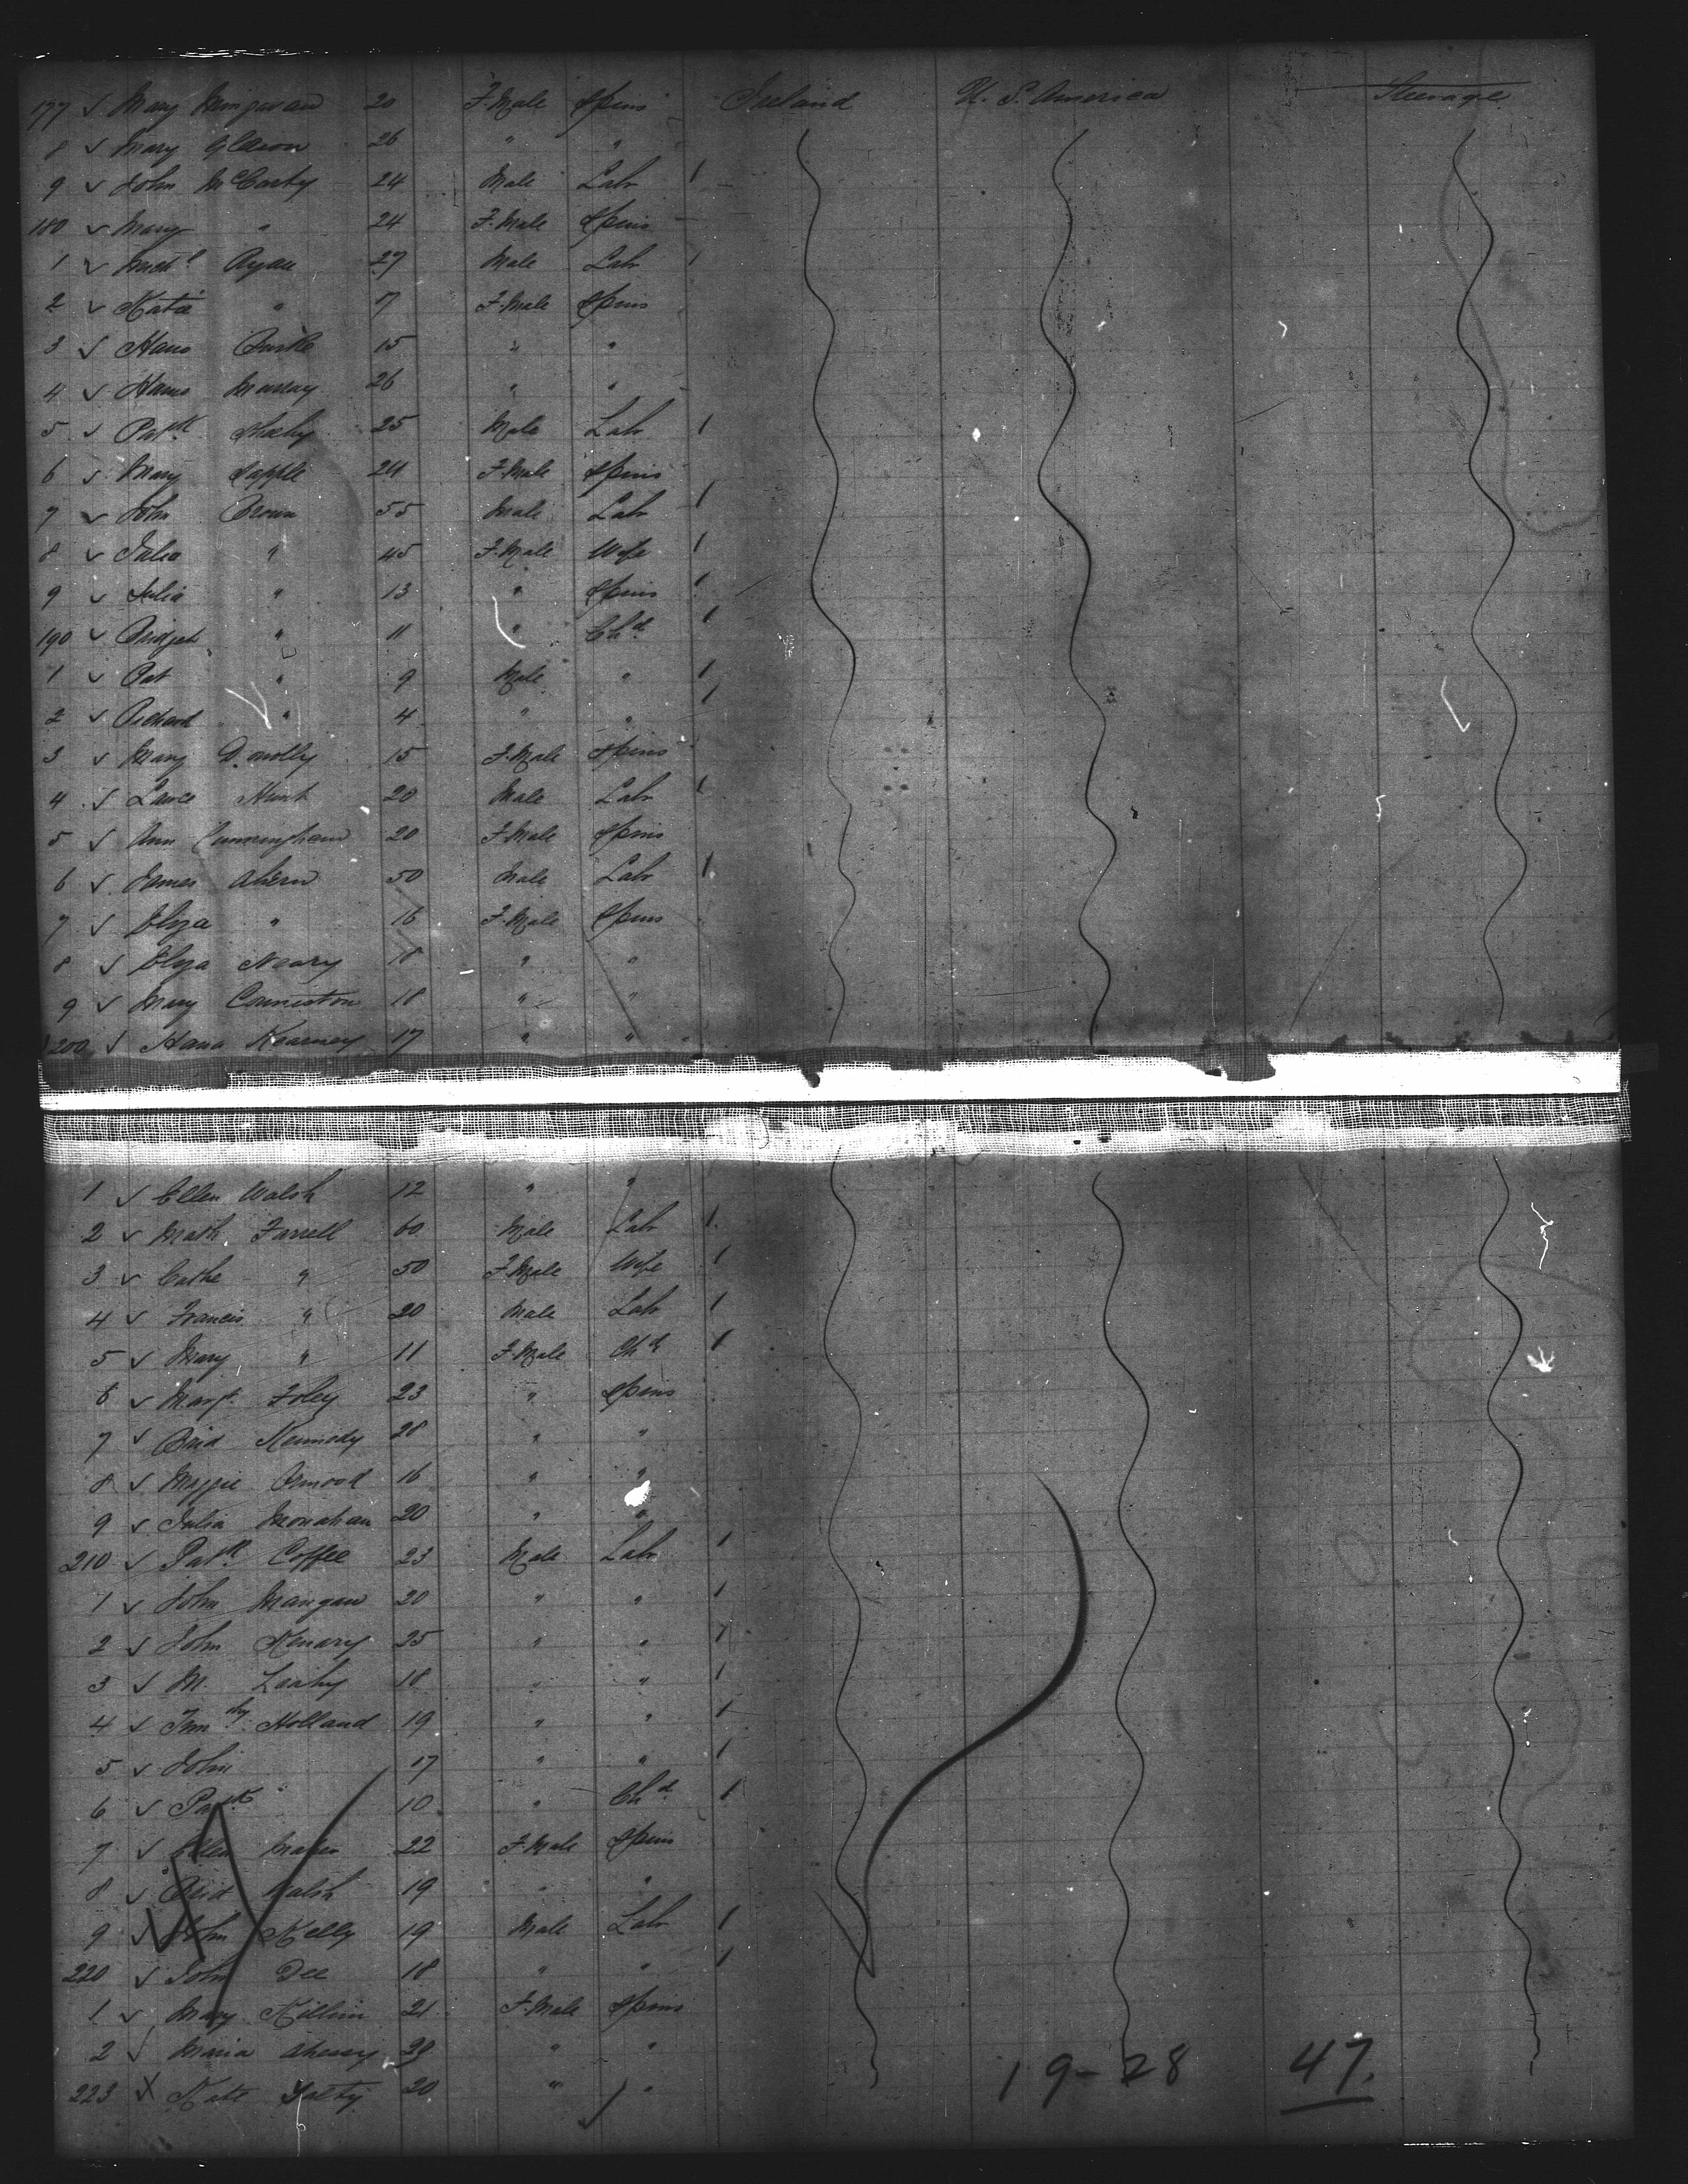 177 ✓ Mary 20 F.Male Spins Ireland U. S. America Steerage
8 ✓ Mary Gleason 26 " "
9 ✓ John McCarty 24 Male Labr 1
180 ✓ Mary " 24 F.Male Spins
1 ✓ Michl Ryan 27 Male Labr 1
2 ✓ Katie " 7 F.Male Spins
3 ✓ Hano 15 " "
4 ✓ Hano Murray 26 " "
5 ✓ Patk Sheehy 25 Male Labr 1
6 ✓ Mary Supple 24 F.Male Spins
7 ✓ John Brown 55 Male Labr 1
8 ✓ Julia " 45 F.Male Wife 1
9 ✓ Julia " 13 " Spins 1
190 ✓ Bridget " 11 " Chd 1
1 ✓ Pat " 9 Male " 1
2 ✓ Richard " 4 " " 1
3 ✓ Mary Donolly 15 F.Male Spins
4 ✓ Lance Hunt 20 Male Labr 1
5 ✓ Ann Cunningham 20 F.Male Spins
6 ✓ James Ahern 50 Male Labr 1
7 ✓ Eliza " 16 F.Male Spins
8 ✓ Eliza Neary 18 " "
9 ✓ Mary Conniston 18 " "
200 ✓ Hana Kearney 17 " "
1 ✓ Ellen Walsh 12 " "
2 ✓ Math Farrell 60 Male Labr 1
3 ✓ Cathe " 50 F.Male Wife 1
4 ✓ Francis " 20 Male Labr 1
5 ✓ Mary " 11 F.Male Chd 1
6 ✓ Margt Foley 23 " Spins
7 ✓ Brid Kennedy 28 " "
8 ✓ Maggie Ormood 16 " "
9 ✓ Julia Monahan 20 " "
210 ✓ Patk Coffee 23 Male Labr 1
1 ✓ John Mangan 20 " " 1
2 ✓ John Kenary 25 " " 1
3 ✓ M. Leahy 18 " " 1
4 ✓ Timothy Holland 19 " " 1
5 ✓ John 17 " " 1
6 ✓ Patk " 10 " Chd 1
7 ✓ Ellen Maher 22 F.Male Spins
8 ✓ Brid Walsh 19 " "
9 ✓ John Kelly 19 Male Labr 1
220 ✓ John Dee 18 " " 1
1 ✓ Mary Killim 21 F.Male Spins
2 ✓ Maria 29 " "
223 X Kate 20 " "
19-28 47.